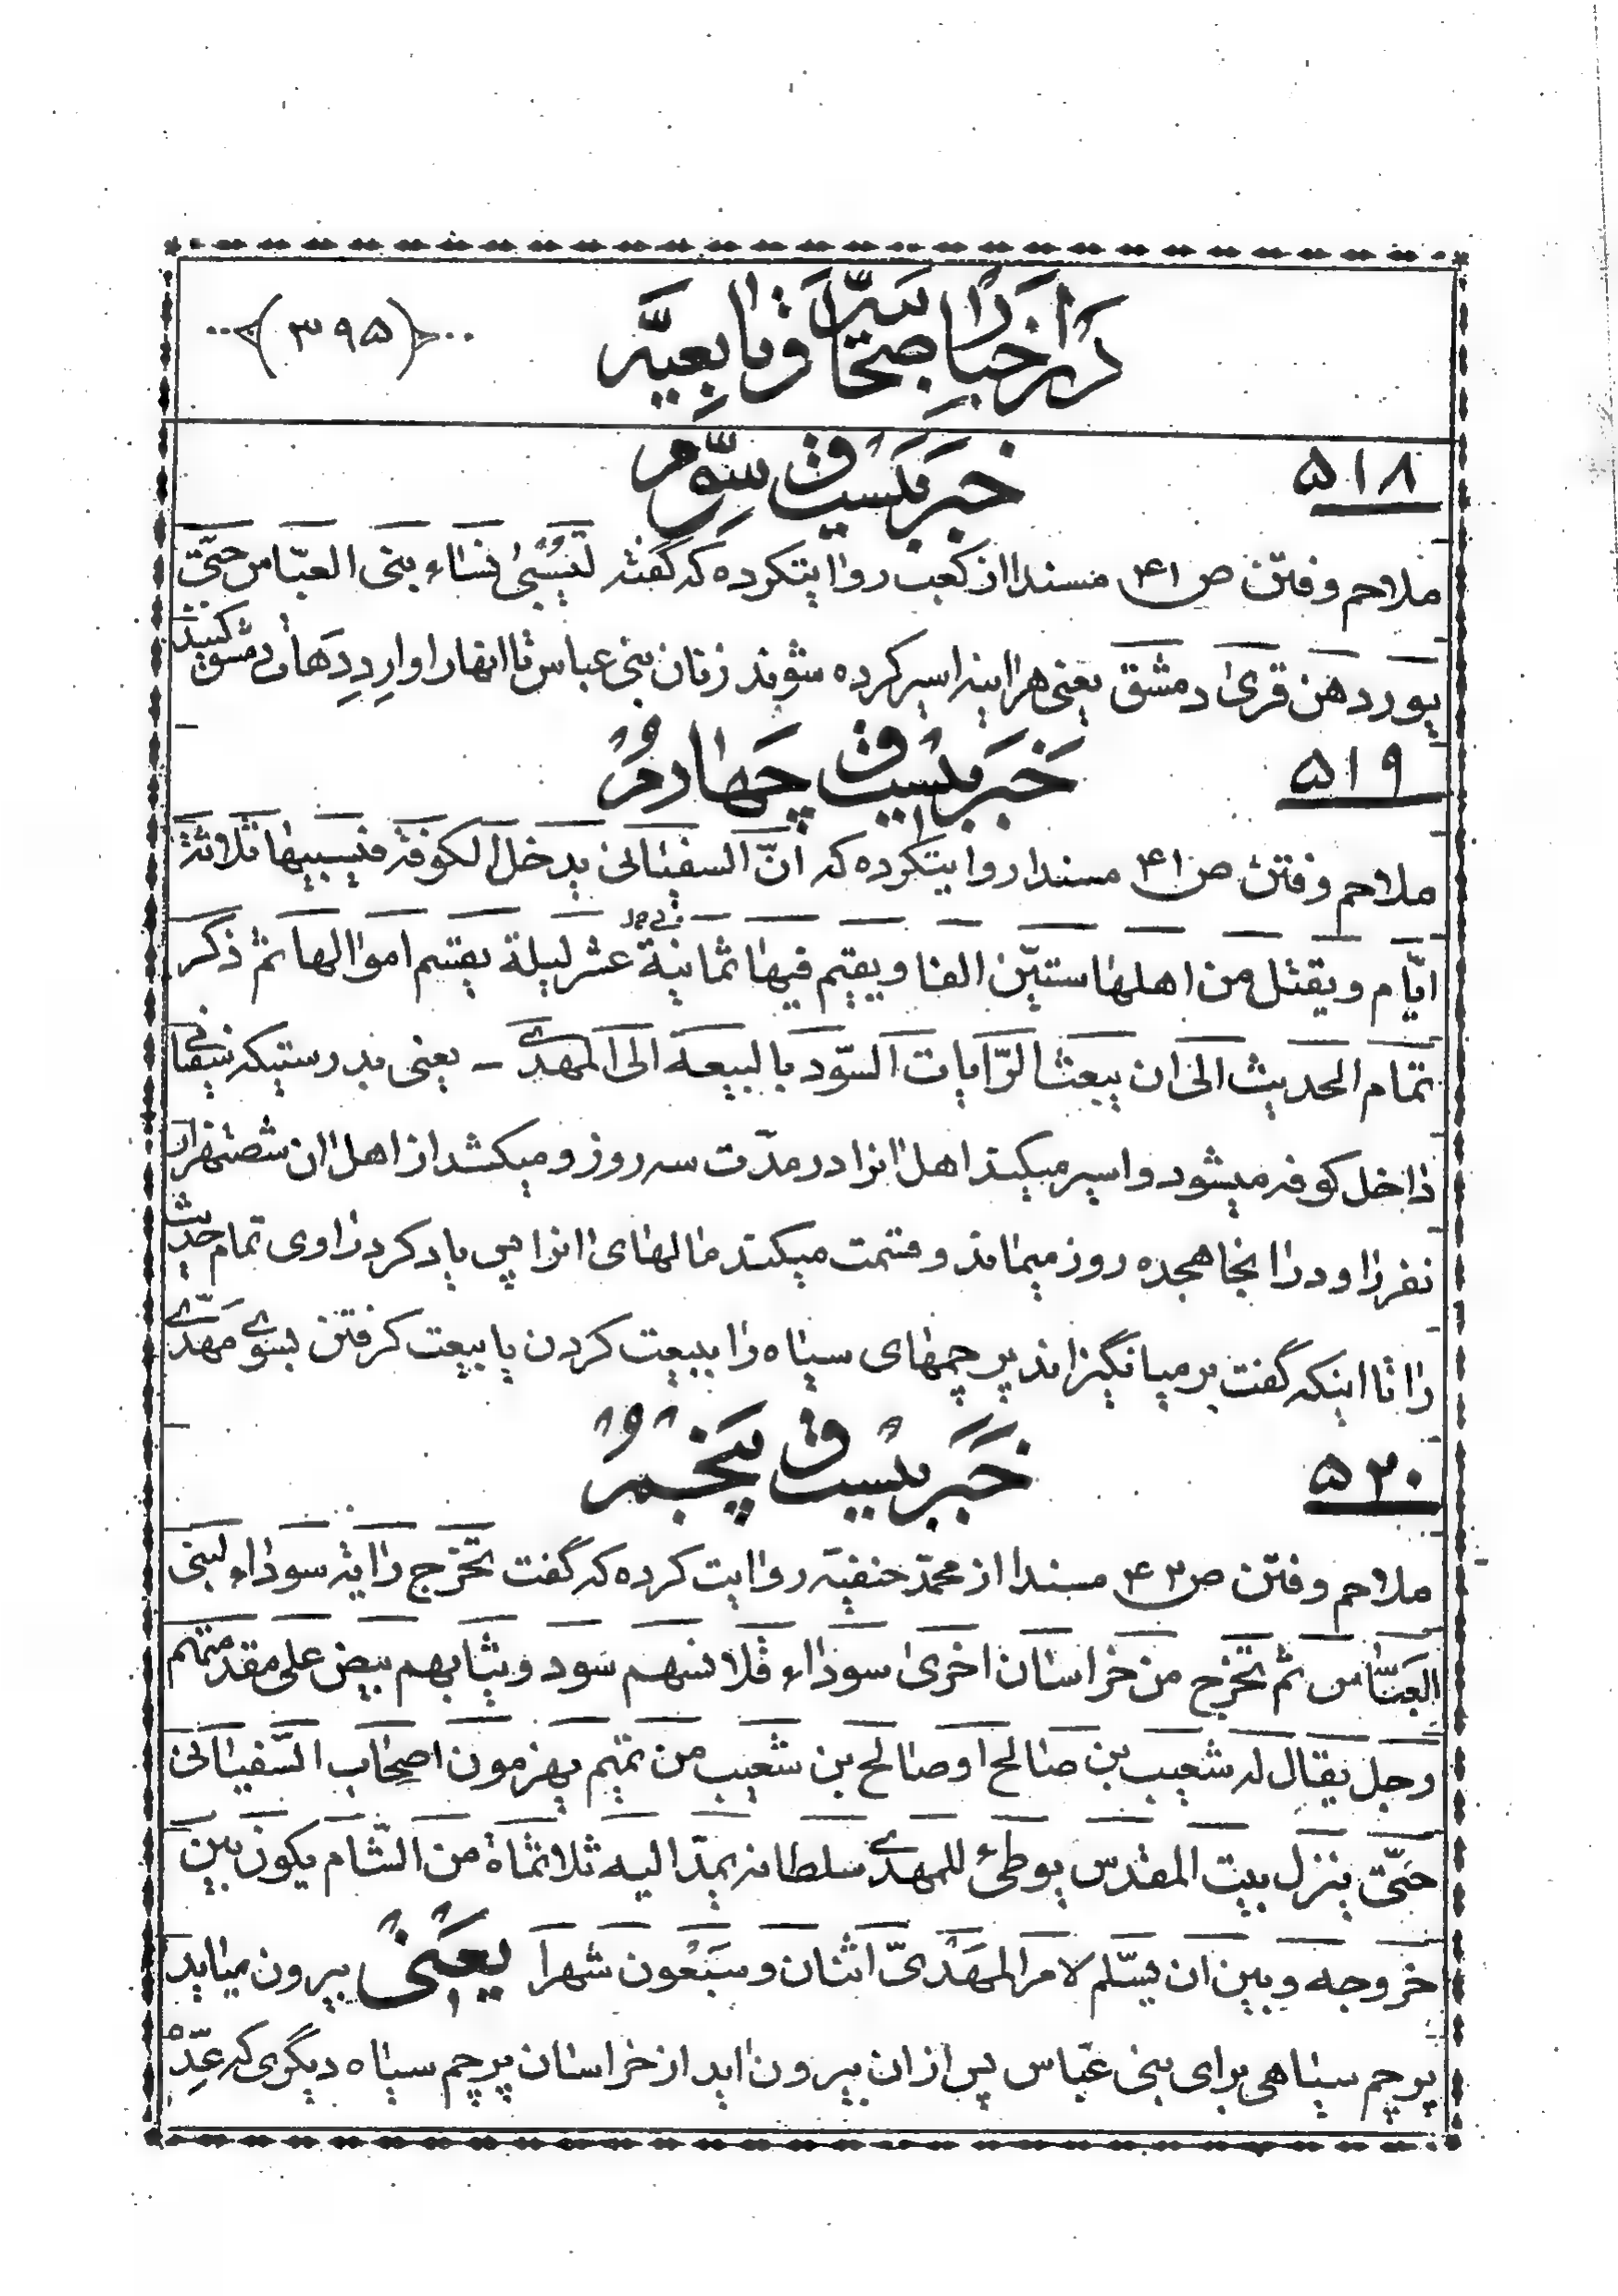 در اخبار صحابه و تابعیه
(۳۹۵)
خبر بیست و سوم
۵۱۸
ملاحم و فتن ص ۴۱ مسندا از کعب روایتکرده که گفته لتسبین نساء بنی العباس حتی
یوردهن قری دمشق یعنی هراینه اسیر کرده شوند زنان بنی عباس تا انها را وارد دهات دمشق کنند
خبر بیست و چهارم
۵۱۹
ملاحم و فتن ص ۴۱ مسندا روایتکرده که انّ السفیانی یدخل الکوفة فیسبیها ثلاثة
ایّام و یقتل من اهلها ستّین الفا و یقیم فیها ثمانیة عشر لیلة یقسم اموالها ثم ذکر
تمام الحدیث الی ان یبعث الرّایات السّود بالبیعه الی المهدی - یعنی بدرستیکه سفیانی
داخل کوفه میشود و اسیر میکند اهل انرا در مدّت سه روز و میکشد از اهل ان شصت هزار
نفر را و در انجا هجده روز میماند و قسمت میکند مالهای انرا پس یاد کرد راوی تمام حدیث
را تا اینکه گفت برمیانگیزاند پرچمهای سیاه را ببیعت کردن یا بیعت گرفتن بسوی مهدی
خبر بیست و پنجم
۵۲۰
ملاحم و فتن ص ۴۳ مسندا از محمّد حنفیّه روایت کرده که گفت تخرج رایة سوداء لبنی
العبّاس ثم تخرج من خراسان اخری سوداء قلانسهم سود و ثیابهم بیض علی مقدمتهم
رجل یقال له شعیب بن صالح او صالح بن شعیب من تمیم یهزمون اصحاب السّفیانی
حتّی ینزل بیت المقدس یوطئ للمهدی سلطانه یمدّ الیه ثلاثماة من الشّام یکون بین
خروجه و بین ان یسّلم لامر المهدیّ اثنان و سبعون شهرا یعنی بیرون میاید
پرچم سیاهی برای بنی عبّاس پس از ان بیرون اید از خراسان پرچم سیاه دیگری که عدّه